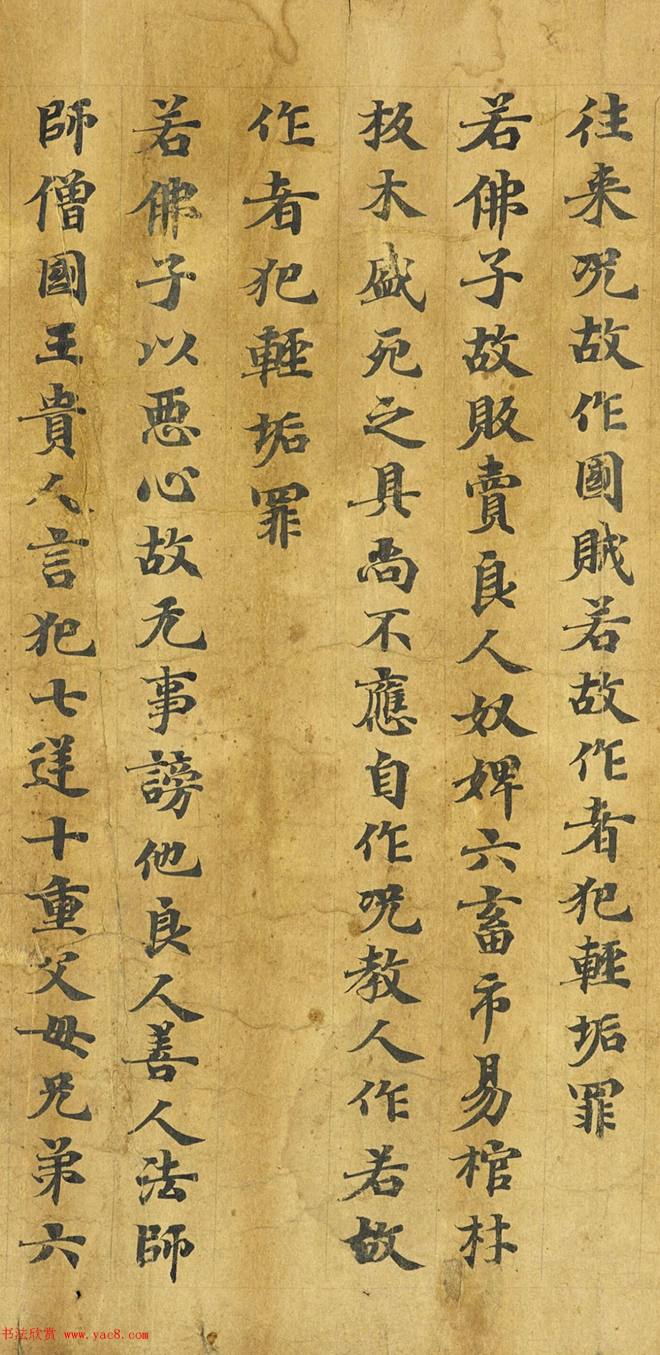 往来咒故作國賊若故作者犯輕垢罪
若佛子故販賣良人奴婢六畜市易棺材
板木盛死之具尚不應自作咒教人作若故
作者犯輕垢罪
若佛子以惡心故无事謗他良人善人法師
師僧國王貴人言犯七逆十重父母兄弟六
书法欣赏 www.yac8.com